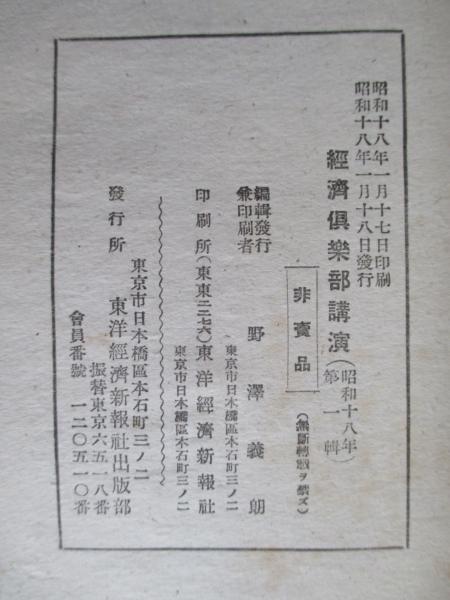 昭和十八年一月十七日印刷
昭和十八年一月十八日發行
經濟俱樂部講演(昭和十八年 第一輯)
非賣品
(無斷轉載ヲ禁ズ)
編輯發行兼印刷者 野澤義朗
東京市日本橋區本石町三ノ二
印刷所(東東二二七六)東洋經濟新報社
東京市日本橋區本石町三ノ二
發行所
東京市日本橋區本石町三ノ二
東洋經濟新報社出版部
振替東京六五一八番
會員番號一二〇五一〇番